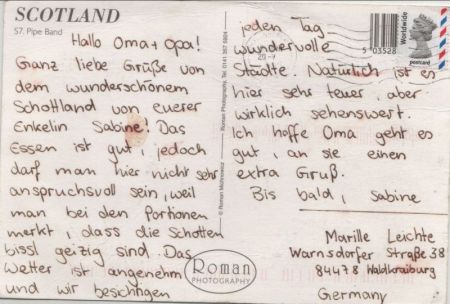 SCOTLAND
57. Pipe Band
Hallo Oma + Opa!
Ganz liebe Grüße von
dem wunderschönem
Schottland von euerer
Enkelin Sabine! Das
Essen ist gut, jedoch
darf man hier nicht sehr
anspruchsvoll sein, weil
man bei den Portionen
merkt, dass die Schotten
bissl geizig sind. Das
Wetter ist angenehm
und wir besichtigen
jeden Tag
wundervolle
Städte. Natürlich ist es
hier sehr teuer, aber
wirklich sehenswert.
Ich hoffe Oma geht es
gut, an sie einen
extra Gruß.
Bis bald, Sabine
Marille Leichte
Warnsdorfer Straße 38
84478 Waldkraiburg
Germany
Roman
PHOTOGRAPHY
Roman Photography, Tel: 0141 357
5 03528
Worldwide
postcard